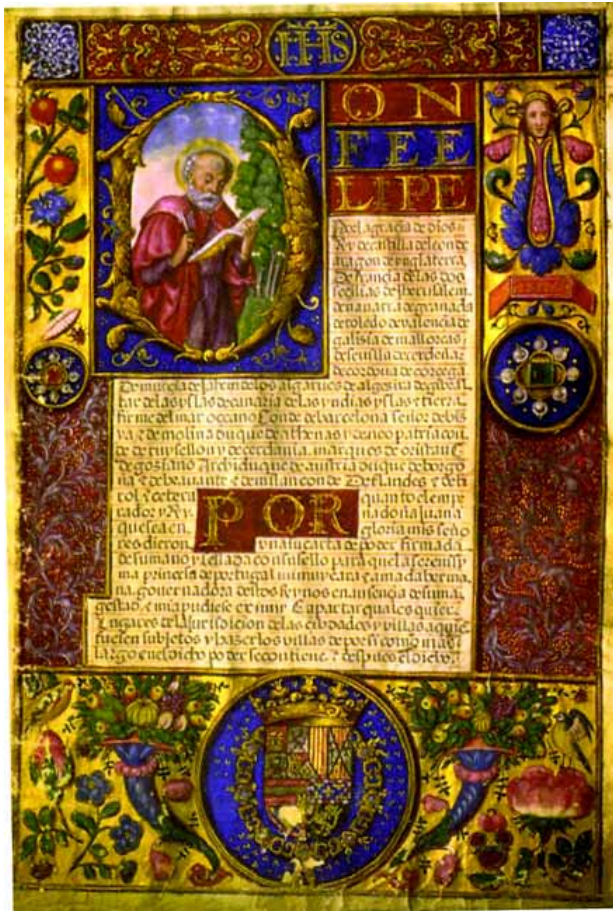 IHS
ON
FEE
LIPE
Por la gracia de dios
Rey de castilla de leon de
aragon de ynglaterra
De francia de las dos
secilias de Jherusalem
de navarra de granada
de toledo de valencia de
galisia de mallorcas
de sevilla de cerdeña
de cordova de corcega
De murcia de Jahen de los algarves de algezira de gibral
tar de las yslas de canaria de las yndias yslas e tierra
firme del mar oceano Conde de barcelona señor de bis
caya e de molina duque de athenas y de neopatria con
de de ruysellon y de cerdania marques de oristan
de gosiano Archiduque de austria duque de borgo
ña e de bravante e de milan conde De flandes e de ti
rol etcetera
POR
quanto el empe
rador y Rey
na doña Juana
que sea en
gloria mis seño
res dieron
una su carta de poder firmada
de su mano y sellada con su sello para que la serenissi
ma princesa de portugal mi muy cara e amada herma
na governadora destos reynos en ausencia de su ma
gestad e mia pudiese eximir e apartar quales quier
Lugares de la jurisdicion de las ciudades y villas a quien
fuesen subjetos y hazerlos villas de por si como mas
largo en el dicho poder se contiene e despues el dicho